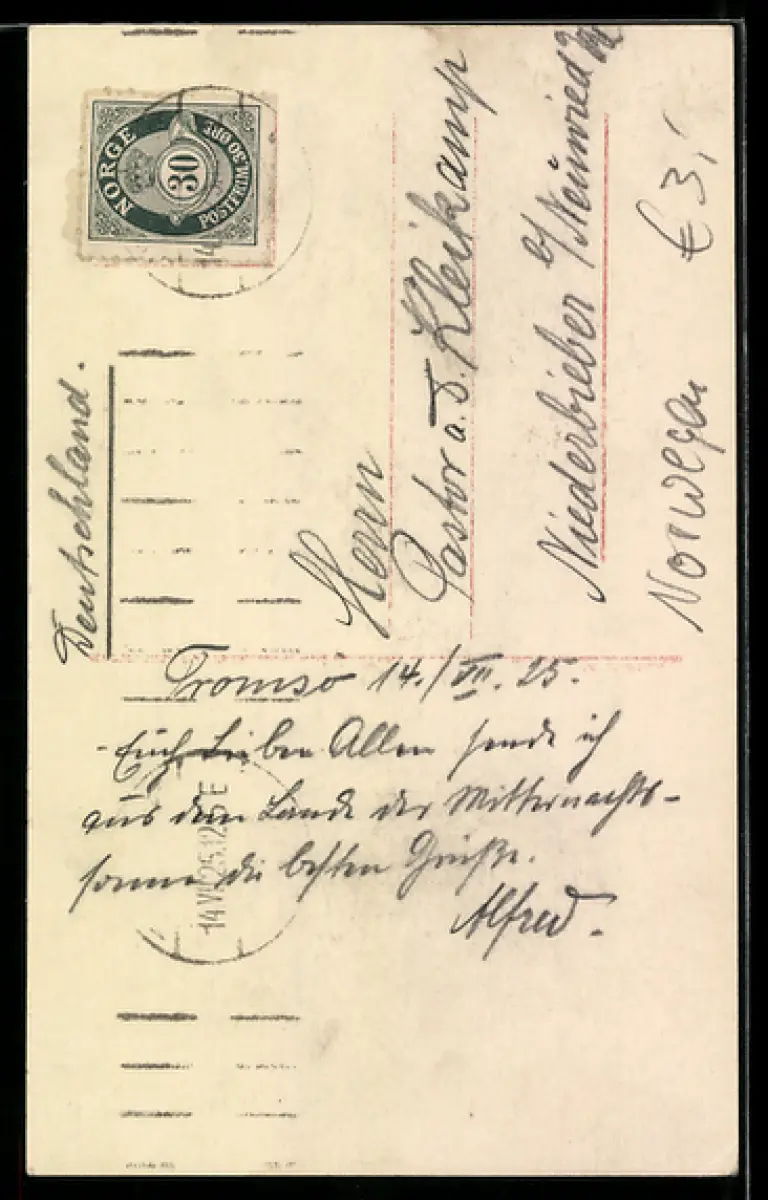 NORGE
30
POSTFRIM. 30 ØRE
Deutschland.
Herrn
Pastor a. D. Kleikamp
Niederbieber b/Neuwied
Norwegen € 3,-
Tromsö 14./VII. 25.
Euch Lieben Allen sende ich
aus dem Lande der Mitternachts-
sonne die besten Grüße.
Alfred.
14 VII 25.12